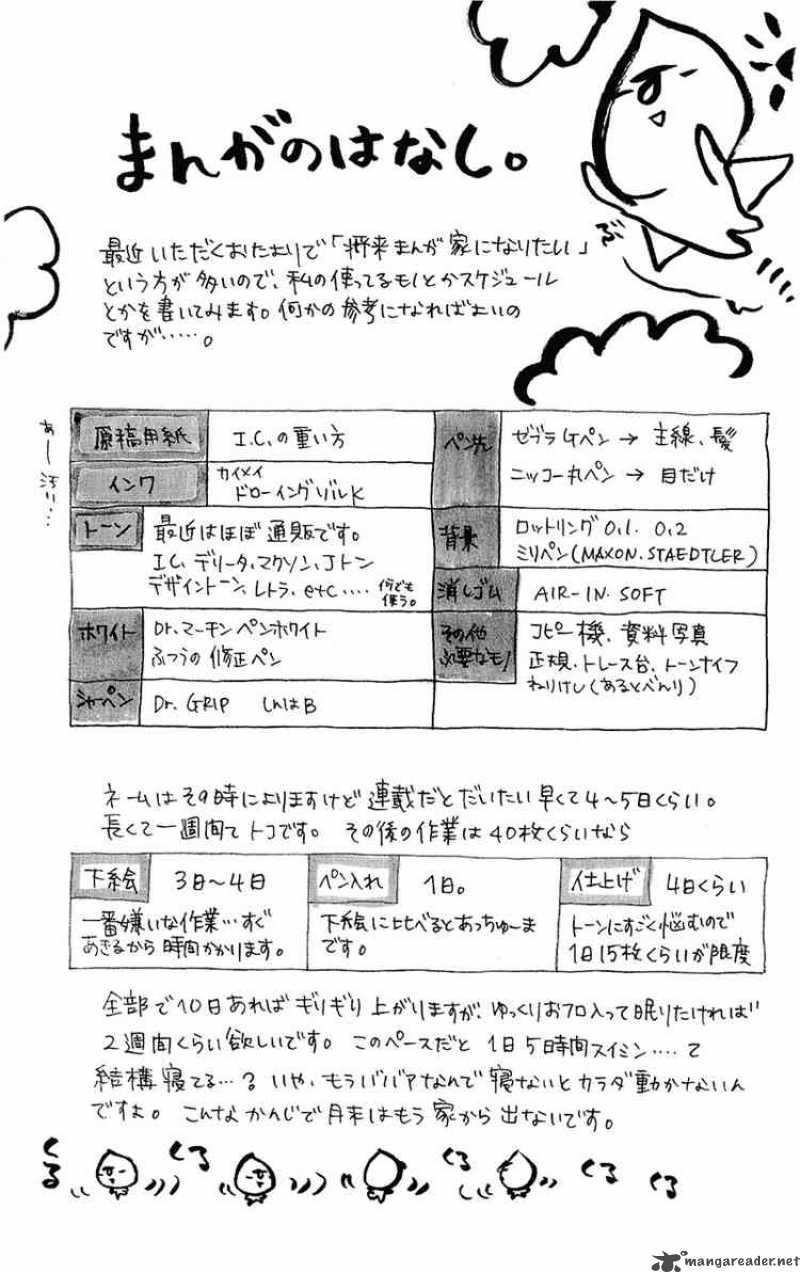 まんがのはなし。
最近いただくおたよりで「将来まんが家になりたい」
という方が多いので、私の使ってるモノとかスケジュール
とかを書いてみます。何かの参考になればよいの
ですが……。
あー汚い…
原稿用紙
I.C.の重い方
インク
カイメイ
ドローイングゾルK
トーン
最近はほぼ通販です。
I.C.デリータ、マクソン、Jトン
デザイントーン、レトラ、etc….
何でも
使う。
ホワイト
Dr.マーチンペンホワイト
ふつうの修正ペン
シャーペン
Dr. GRIP しんはB
ペン先
ゼブラGペン → 主線、髪
ニッコー丸ペン → 目だけ
背景
ロットリング 0,1. 0,2
ミリペン(MAXON.STAEDTLER)
消しゴム
AIR-IN SOFT
その他
必要なモノ
コピー機、資料写真
正規、トレース台、トーンナイフ
ねりけし(あるとべんり)
ネームはその時によりますけど連載だとだいたい早くて4〜5日くらい。
長くて一週間てトコです。 その後の作業は40枚くらいなら
下絵 3日〜4日
一番嫌いな作業…すぐ
あきるから時間かかります。
ペン入れ 1日。
下絵に比べるとあっちゅーま
です。
仕上げ 4日くらい
トーンにすごく悩むので
1日15枚くらいが限度
全部で10日あればギリギリ上がりますが、ゆっくりおフロ入って眠りたければ
2週間くらい欲しいです。このペースだと 1日5時間スイミン….て
結構寝てる…? いや、もうババアなんで寝ないとカラダ動かないん
ですよ。 こんなかんじで月末はもう家から出ないです。
くる くる くる くる くる
mangareader.net